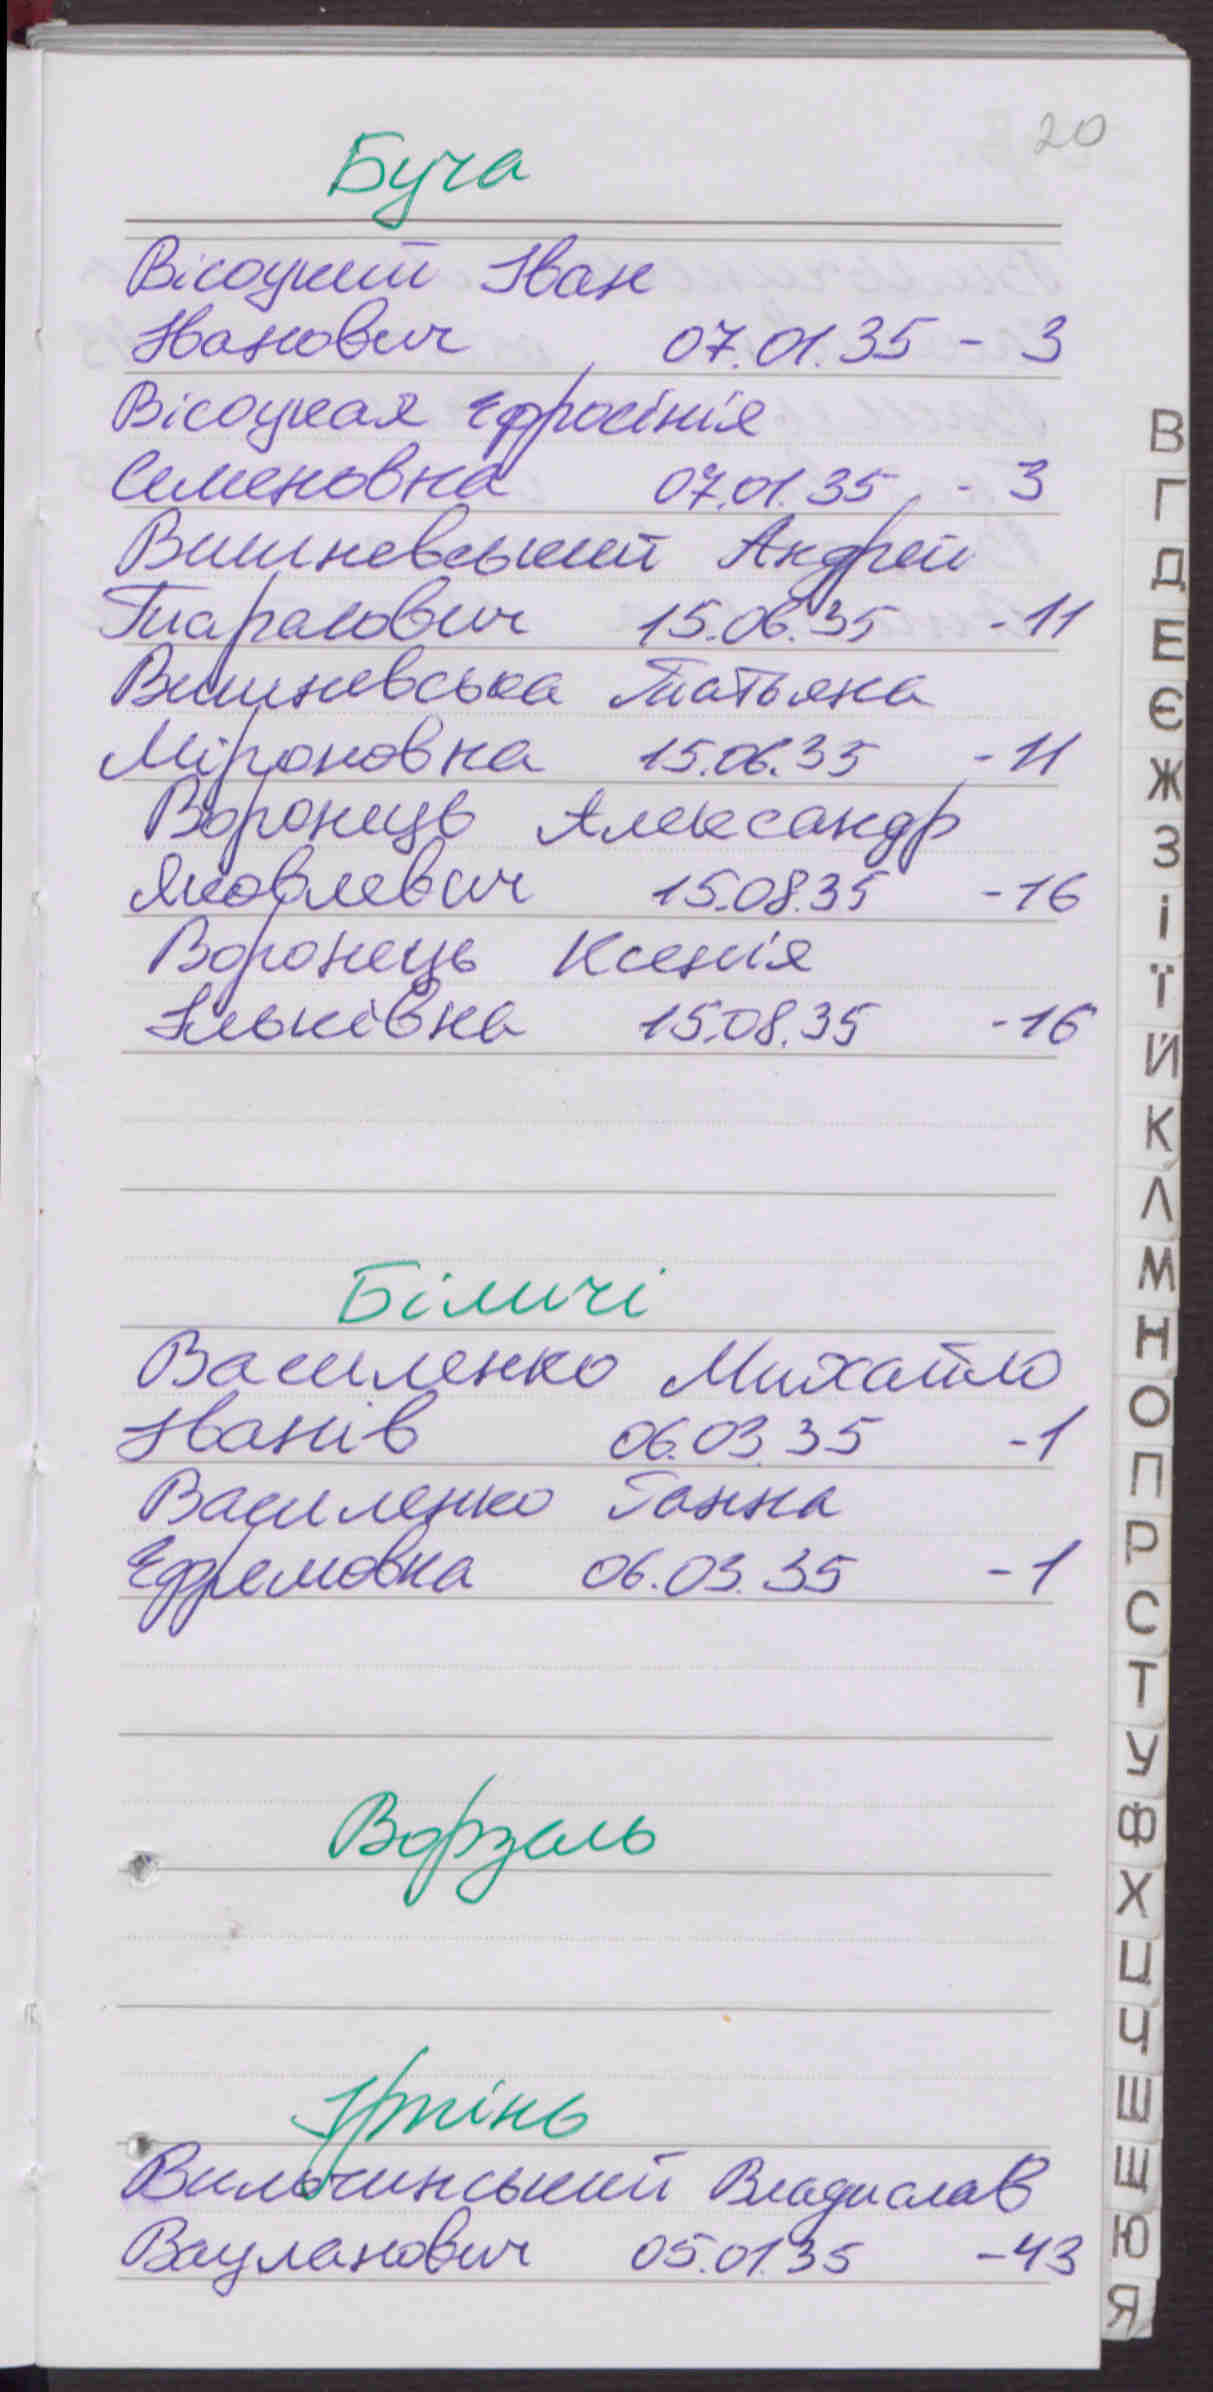 20
Буча
Вісоцкий Іван
Іванович 07.01.35 - 3
Вісоцкая Ефросінія
Семеновна 07.01.35 - 3
Вишневський Андрей
Тарасович 15.06.35 - 11
Вишневська Татьяна
Міроновна 15.06.35 - 11
Воронець Александр
Яковлевич 15.08.35 - 16
Воронець Ксенія
Ільківна 15.08.35 - 16
Біличі
Василенко Михайло
Іванів 06.03.35 - 1
Василенко Ганна
Ефремовна 06.03.35 - 1
Ворзель
Ірпінь
Вильчинський Владислав
05.01.35 - 43
В
Г
Д
Е
Є
Ж
З
І
Ї
Й
К
Л
М
Н
О
П
Р
С
Т
У
Ф
Х
Ц
Ч
Ш
Щ
Ю
Я